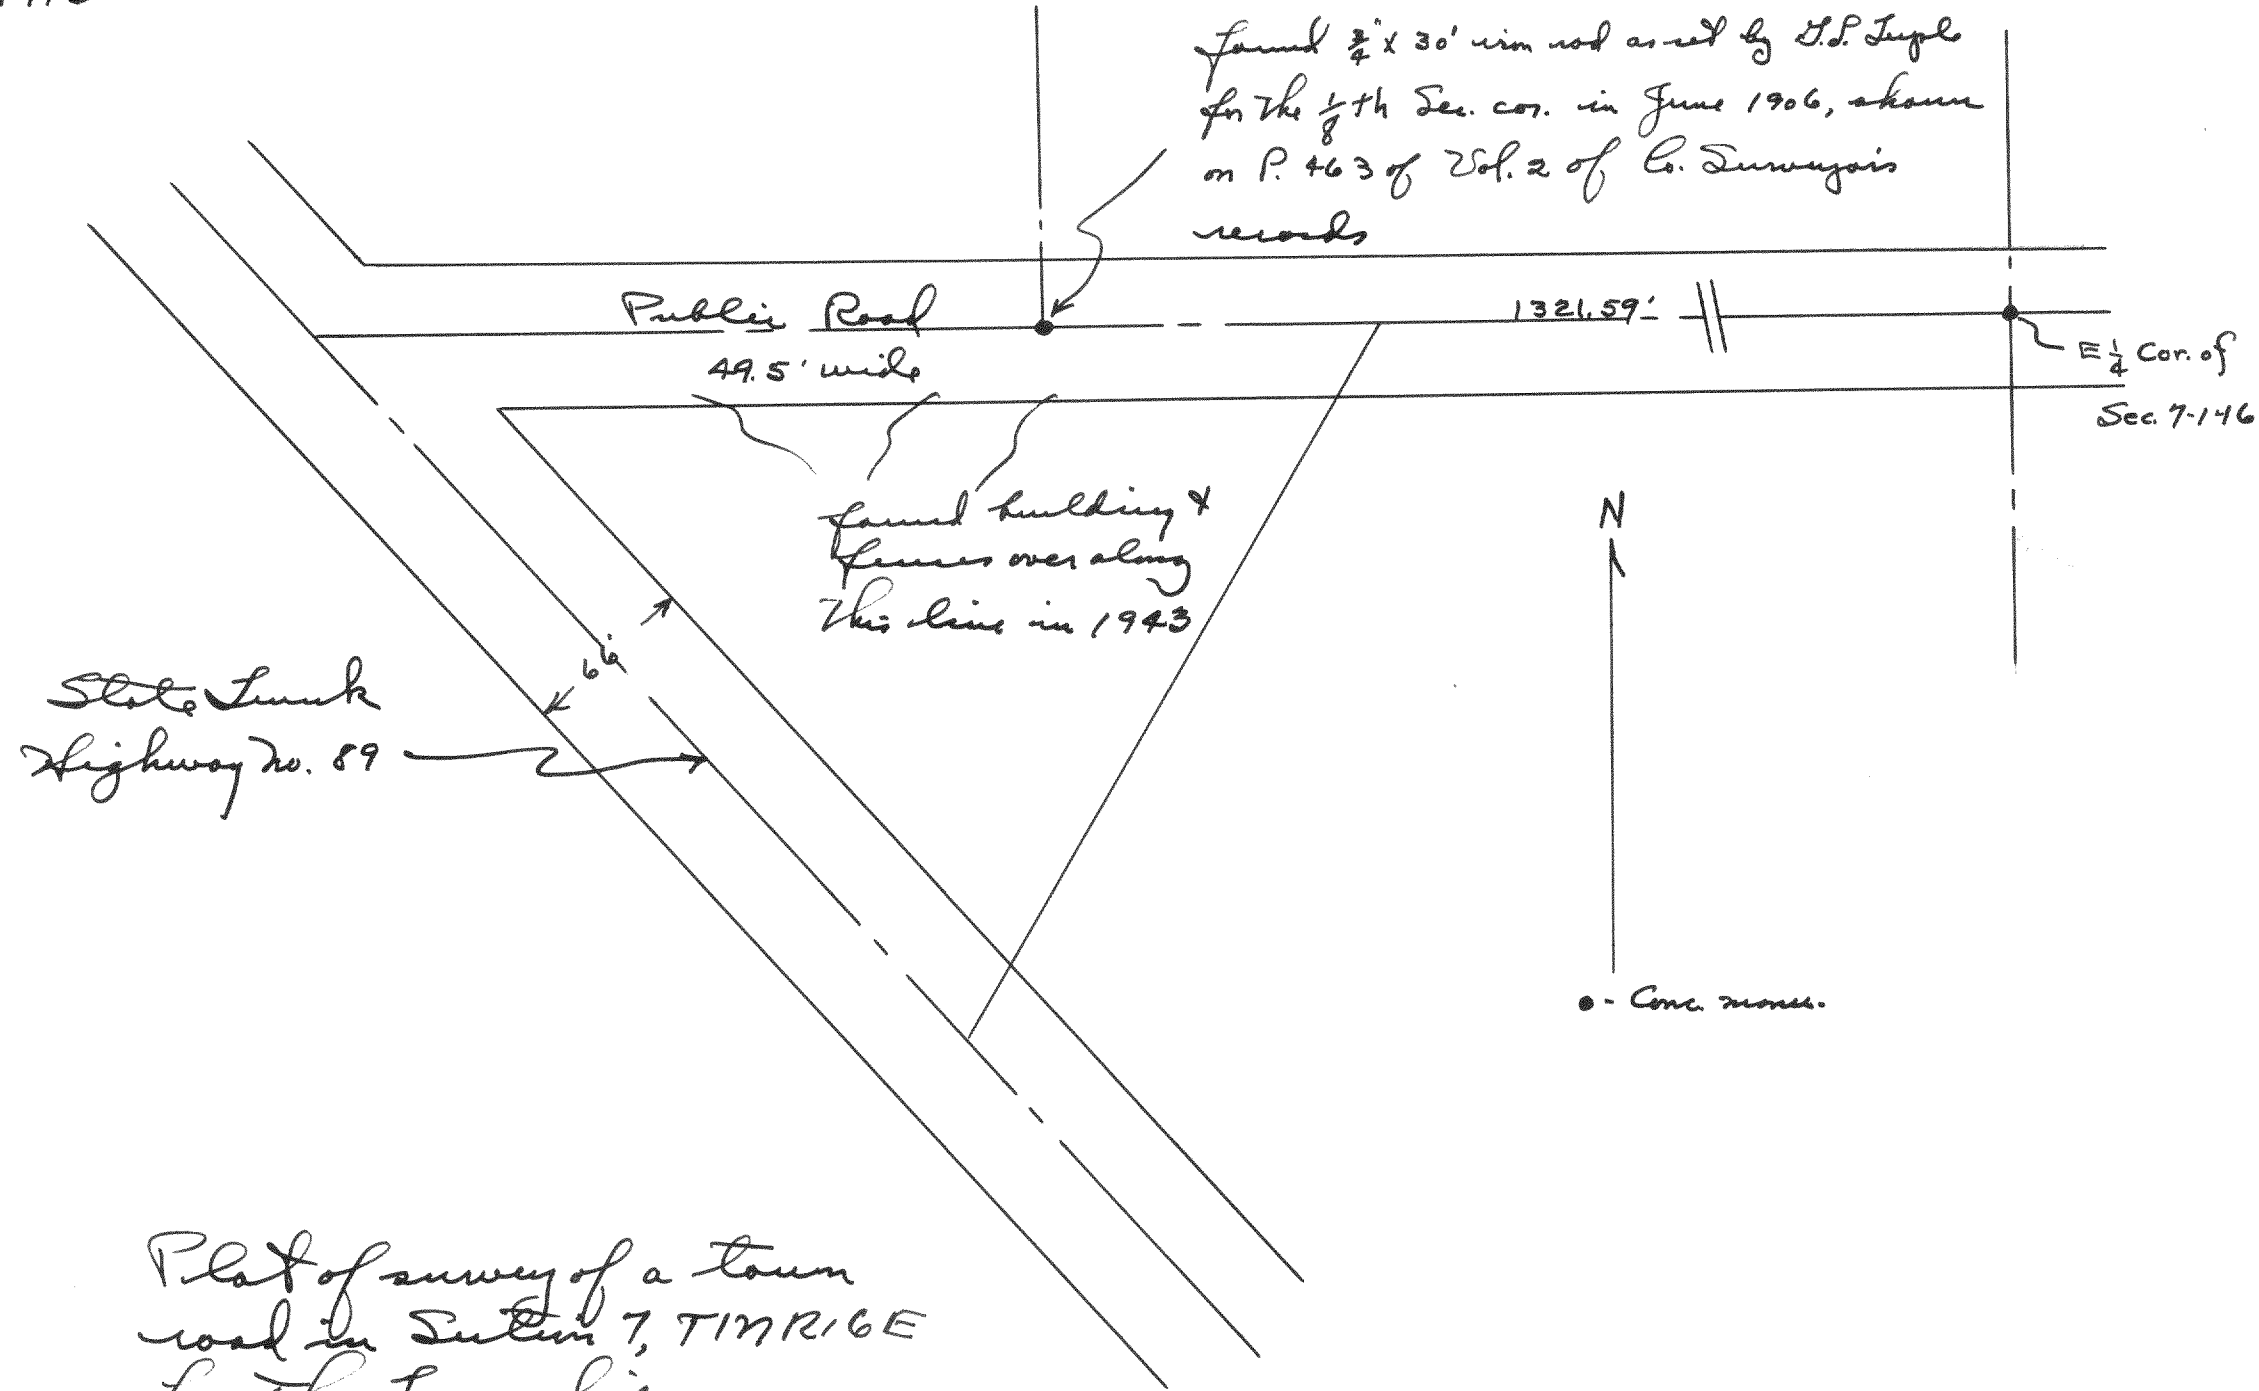 found 3/4" x 30' iron rod as set by
for the 1/8th Sec. cor. in June 1906, shown
on P. 463 of Vol. 2 of Co. Surveyor's
records
Public Road
1321.59'
49.5' wide
E 1/4 Cor. of
Sec. 7-1-16
found building &
fences over along
this line in 1943
N
66'
State Trunk
Highway No. 89
• - Conc. monu.
Plat of survey of a town
road in Section 7, T1N R16E
for the